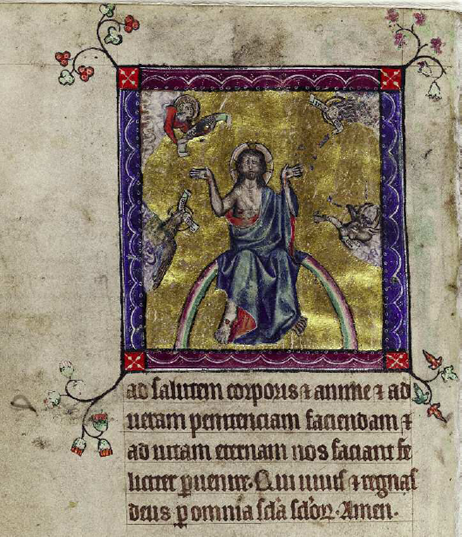 ad salutem corporis ⁊ anime ⁊ ad
ueram penitenciam faciendam ⁊
ad uitam eternam nos faciant fe
liciter ꝑuenire. Qui uiuis ⁊ regnas
deus ꝑ omnia scła scłoꝝ. Amen.